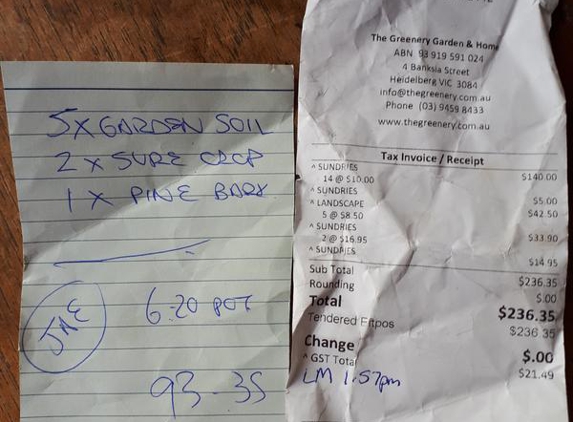 5 X GARDEN SOIL
2 x SURE CROP
1 X PINE BARK
6.20 POT
93-35
The Greenery Garden & Home
ABN 93 919 591 024
4 Banksia Street
Heidelberg VIC 3084
info@thegreenery.com.au
Phone (03) 9459 8433
www.thegreenery.com.au
Tax Invoice / Receipt
^ SUNDRIES
14 @ $10.00 $140.00
^ SUNDRIES $5.00
^ LANDSCAPE
5 @ $8.50 $42.50
^ SUNDRIES
2 @ $16.95 $33.90
^ SUNDRIES $14.95
Sub Total $236.35
Rounding $.00
Total $236.35
Tendered Eftpos $236.35
Change $.00
^ GST Total $21.49
LM 1.57pm